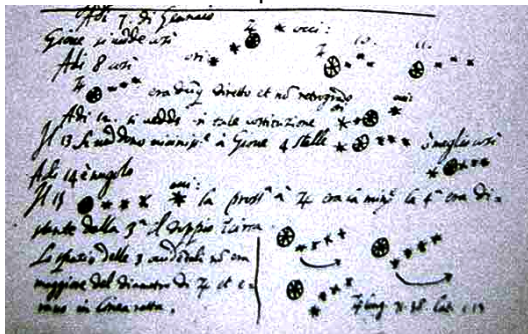 Adi 7. di Gennaio
Gioue si uedde così
ori: occi:
Adi 8 così
10. 11.
era dūq diretto et nō retrogrado
Adi 12. si uedde in tale costituzione
Il 13 si uedono à Gioue 4 stelle ò meglio così
Adi 14 è nugolo
Il 15 la pross.ª à era la la 4.ª era di=
stante dalla 3.ª il doppio
Lo spazio delle 3 nō era
maggiore del diametro di et e=
rano in linea retta.
long. 71.38 lat. 1.13